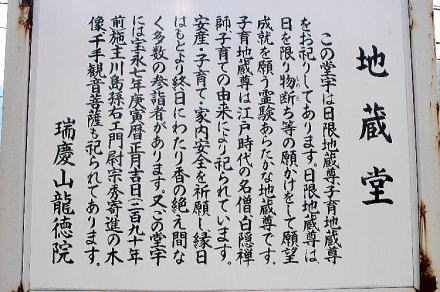 地蔵堂
この堂宇は日限地蔵尊・子育地蔵尊
をお祀りしてあります。日限地蔵尊は
日を限り物断ち等の願かけをして願望
成就を願う霊験あらたかな地蔵尊です。
子育地蔵尊は江戸時代の名僧白隠禅
師子育ての由来により祀られています。
安産・子育て・家内安全を祈願し、縁日
はもとより終日にわたり香の絶え間な
く多数の参詣者があります。又、この堂宇
には宝永七年庚寅暦正月吉日(二百九十年
前)施主川島孫右エ門尉宗秀寄進の木
像、千手観音菩薩も祀られてあります。
瑞慶山龍徳院